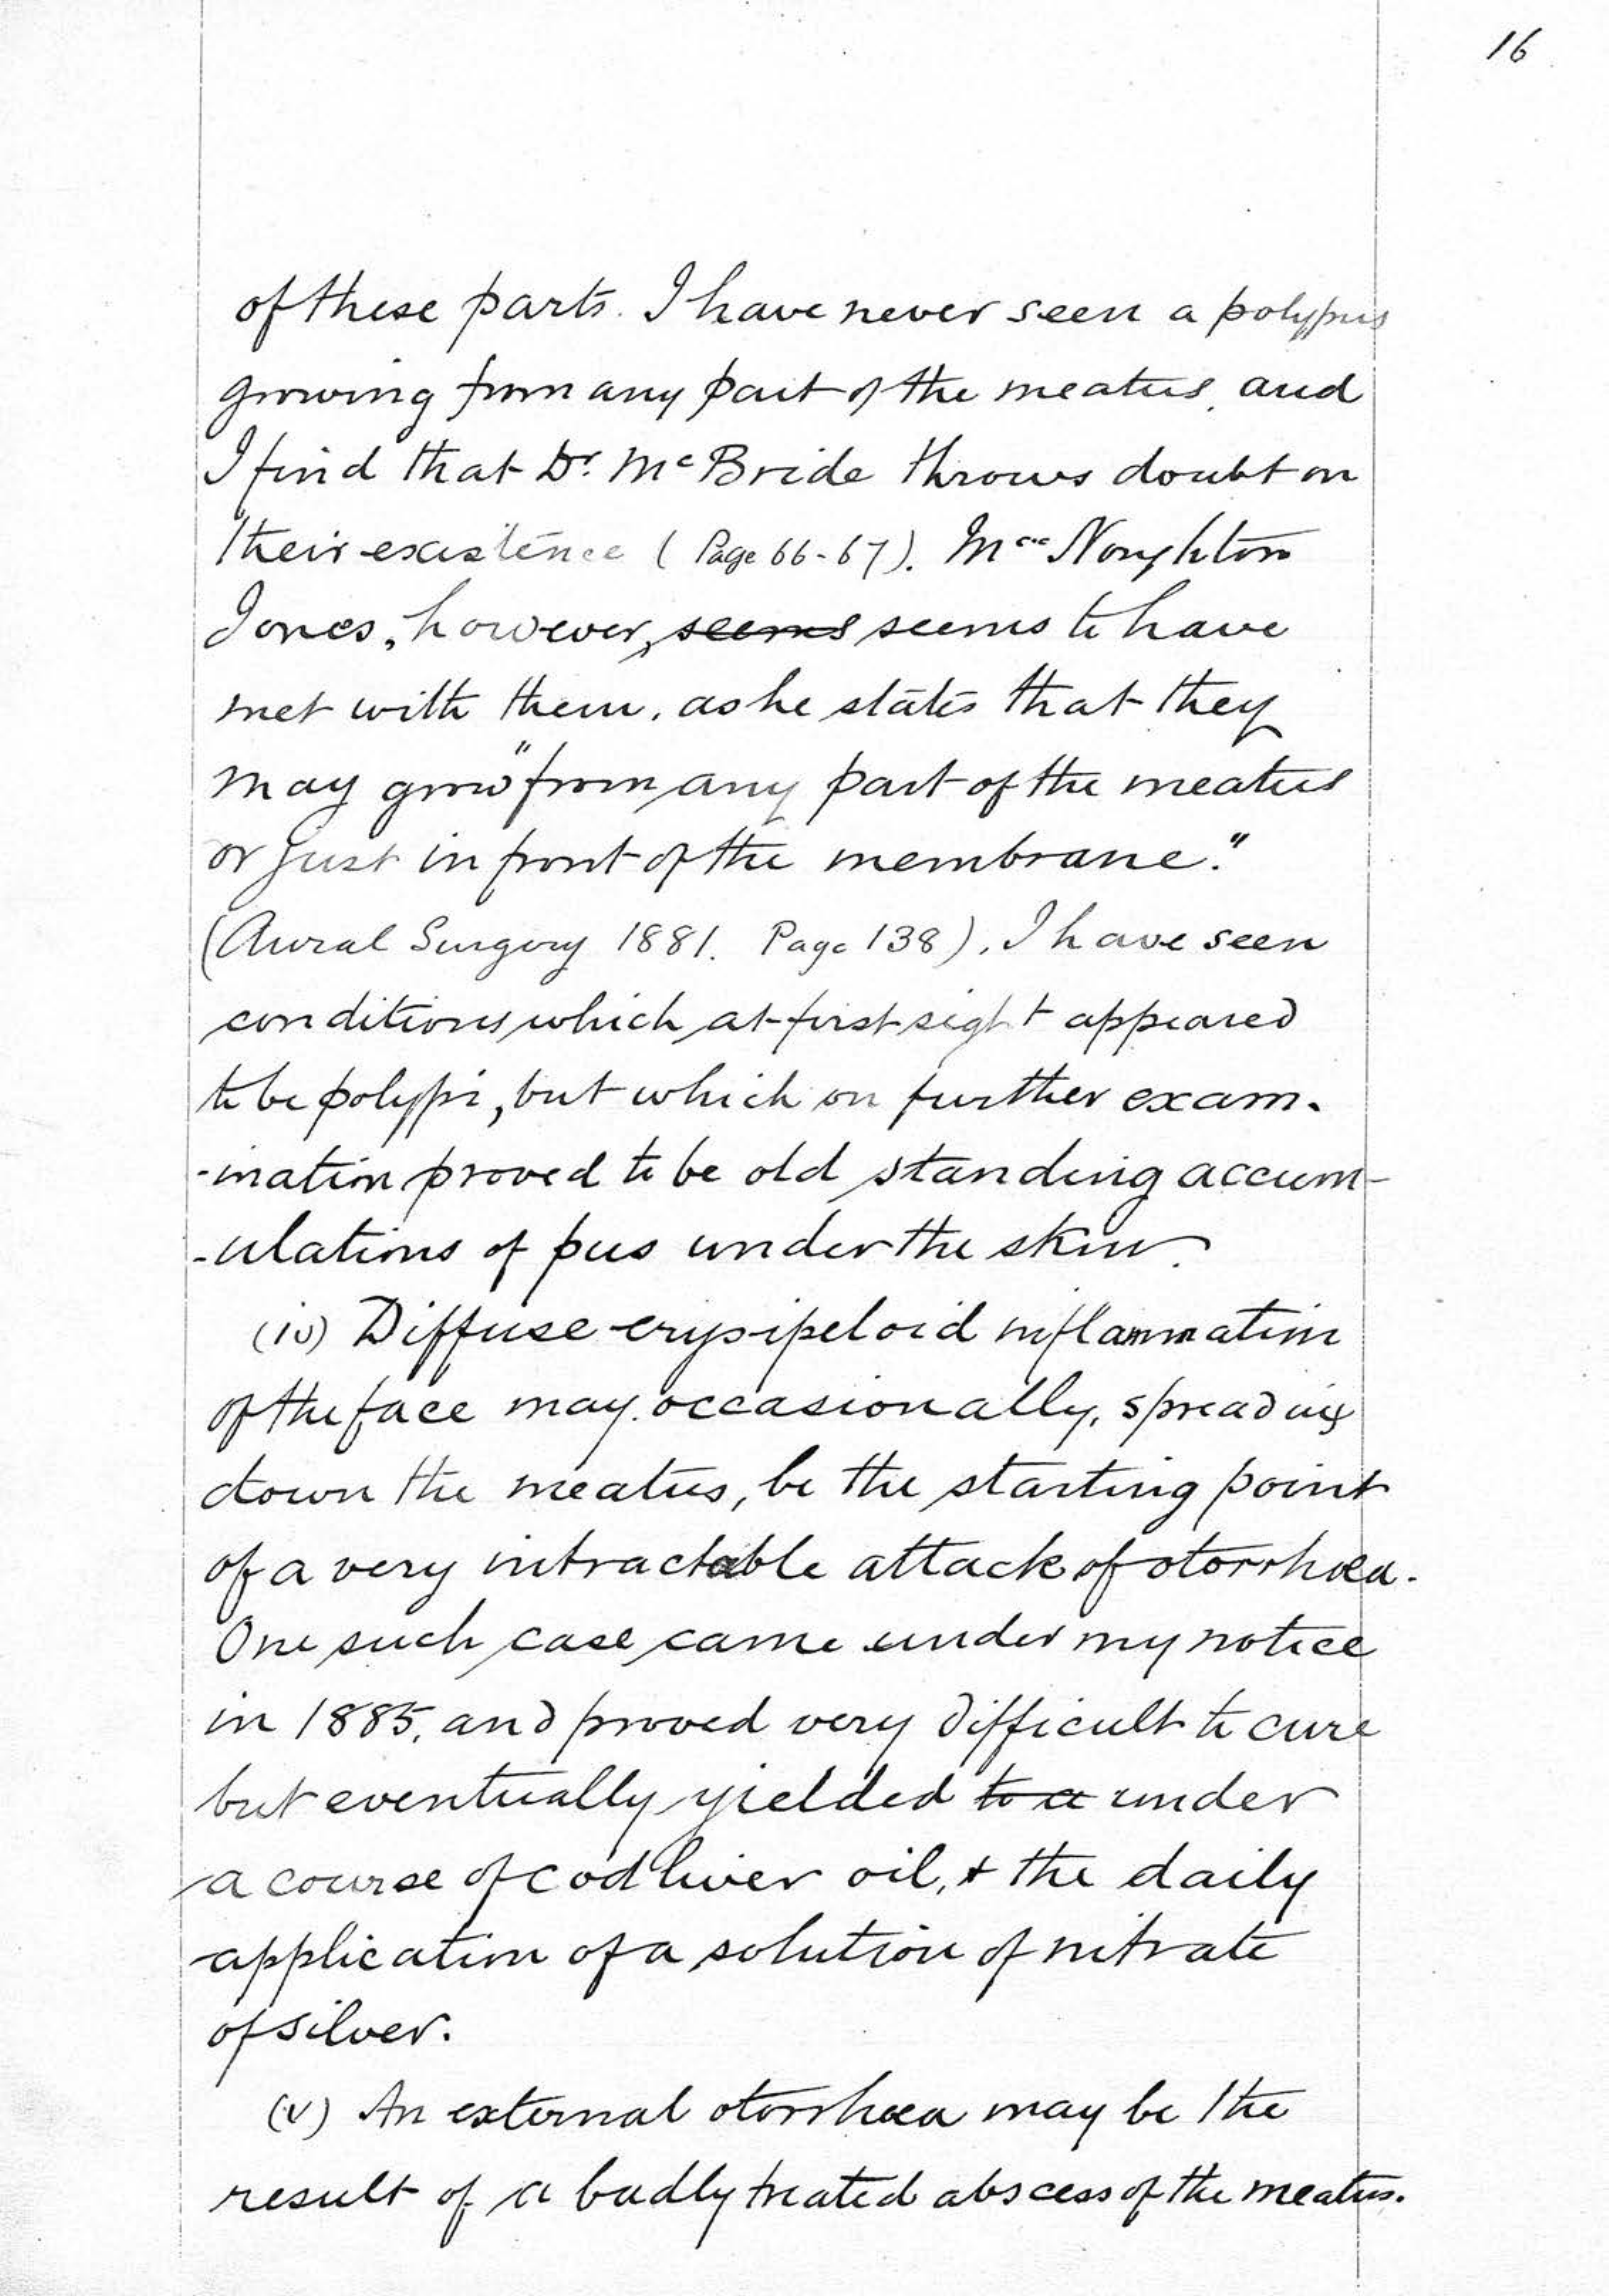 16
of these parts. I have never seen a polypus
growing from any part of the meatus, and
I find that Dr. McBride throws doubt on
their existence (Page 66-67). Mac Noughton
Jones, however, seems seems to have
met with them, as he states that they
may grow "from any part of the meatus
or just in front of the membrane."
(Aural Surgery 1881. Page 138). I have seen
conditions which at first sight appeared
to be polypi, but which on further exam-
-ination proved to be old standing accum-
-ulations of pus under the skin.
(iv) Diffuse erysipeloid inflammation
of the face may occasionally, spreading
down the meatus, be the starting point
of a very intractable attack of otorrhœa.
One such case came under my notice
in 1885, and proved very difficult to cure
but eventually yielded to a under
a course of cod liver oil, & the daily
application of a solution of nitrate
of silver.
(v) An external otorrhœa may be the
result of a badly treated abscess of the meatus.